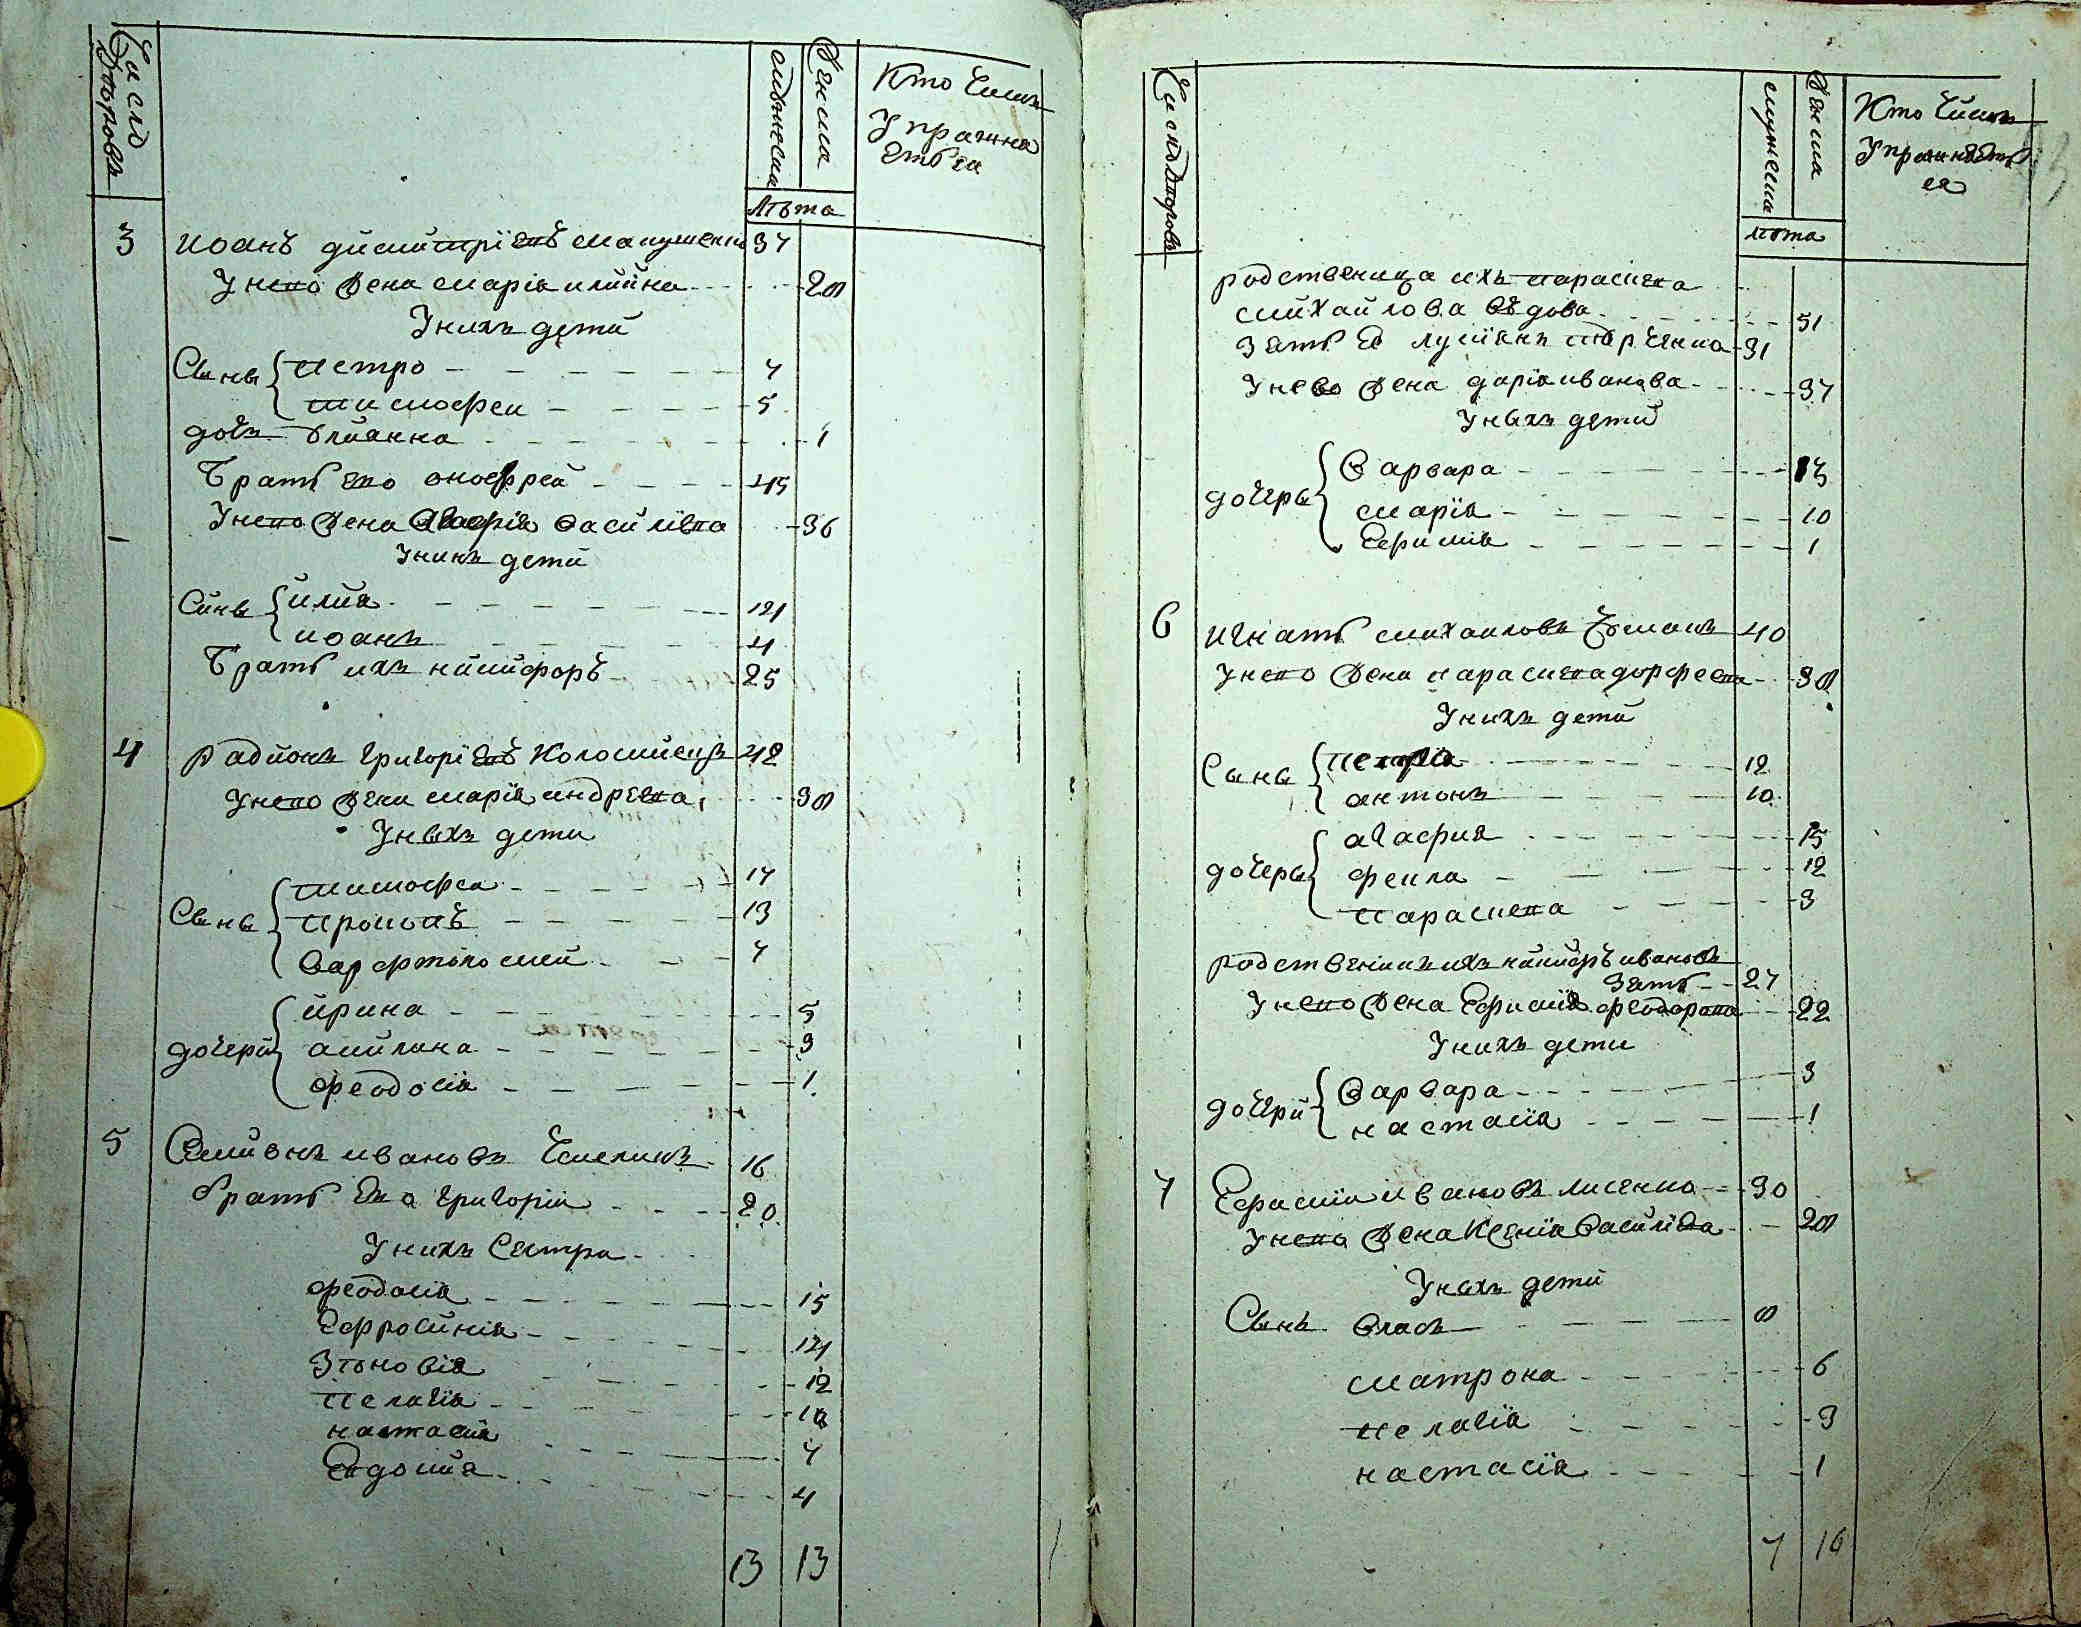 Число Дворовъ
мужеска
женска
Кто Чимъ
Упражня
ется
Лѣта
3 иоанъ димитріевъ 37
У него жена маріа илиина 28
У нихъ дети
Сыны петро 7
тимофеи 5
дочь 1
братъ его онофреи 45
У него жена агафія василіева 36
У нихъ дети
Сины илиа 14
иоанъ 4
братъ ихъ никифоръ 25
4 радионъ григоріевъ коломиецъ 42
У него жена маріа андреева 38
У ныхъ дети
Сыны тимофеи 17
прокопъ 13
варфтоломеи 7
дочери ирина 5
акилина 3
феодосіа 1
5 Симионъ ивановъ 16
братъ его григоріи 20
У нихъ Сестра
феодосіа 15
Ефросиніа 14
Зѣновіа 12
пелагіа 10
настасиа 7
Евдокиа 4
13 13
Число дворовъ
мужеска
женска
Кто Чимъ
Упражняет
ся
лѣта
родственица ихъ параскева
михаилова въдова 51
зять Ее 31
У нево жена даріа иванова 37
У ныхъ дети
дочеры варвара 13
маріа 10
Ефиміа 1
6 игнатъ михаиловъ 40
У него жена параскева 38
У нихъ дети
Сыны петро 12
антонъ 10
дочеры агафиа 15
фекла 12
параскева 3
родственикъ ихъ никифоръ ивановъ
зять 27
У него жена Ефиміа феодорова 22
У нихъ дети
дочери варвара 3
настасіа 1
7 Ефиміи ивановъ лисенко 30
У него жена Ксеніа василіева 28
У ныхъ дети
Сынъ власъ 8
матрона 6
пелагіа 3
настасіа 1
7 16